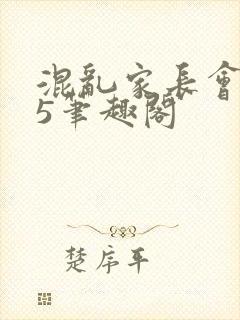 混亂家長會
5筆趣閣
楚序平